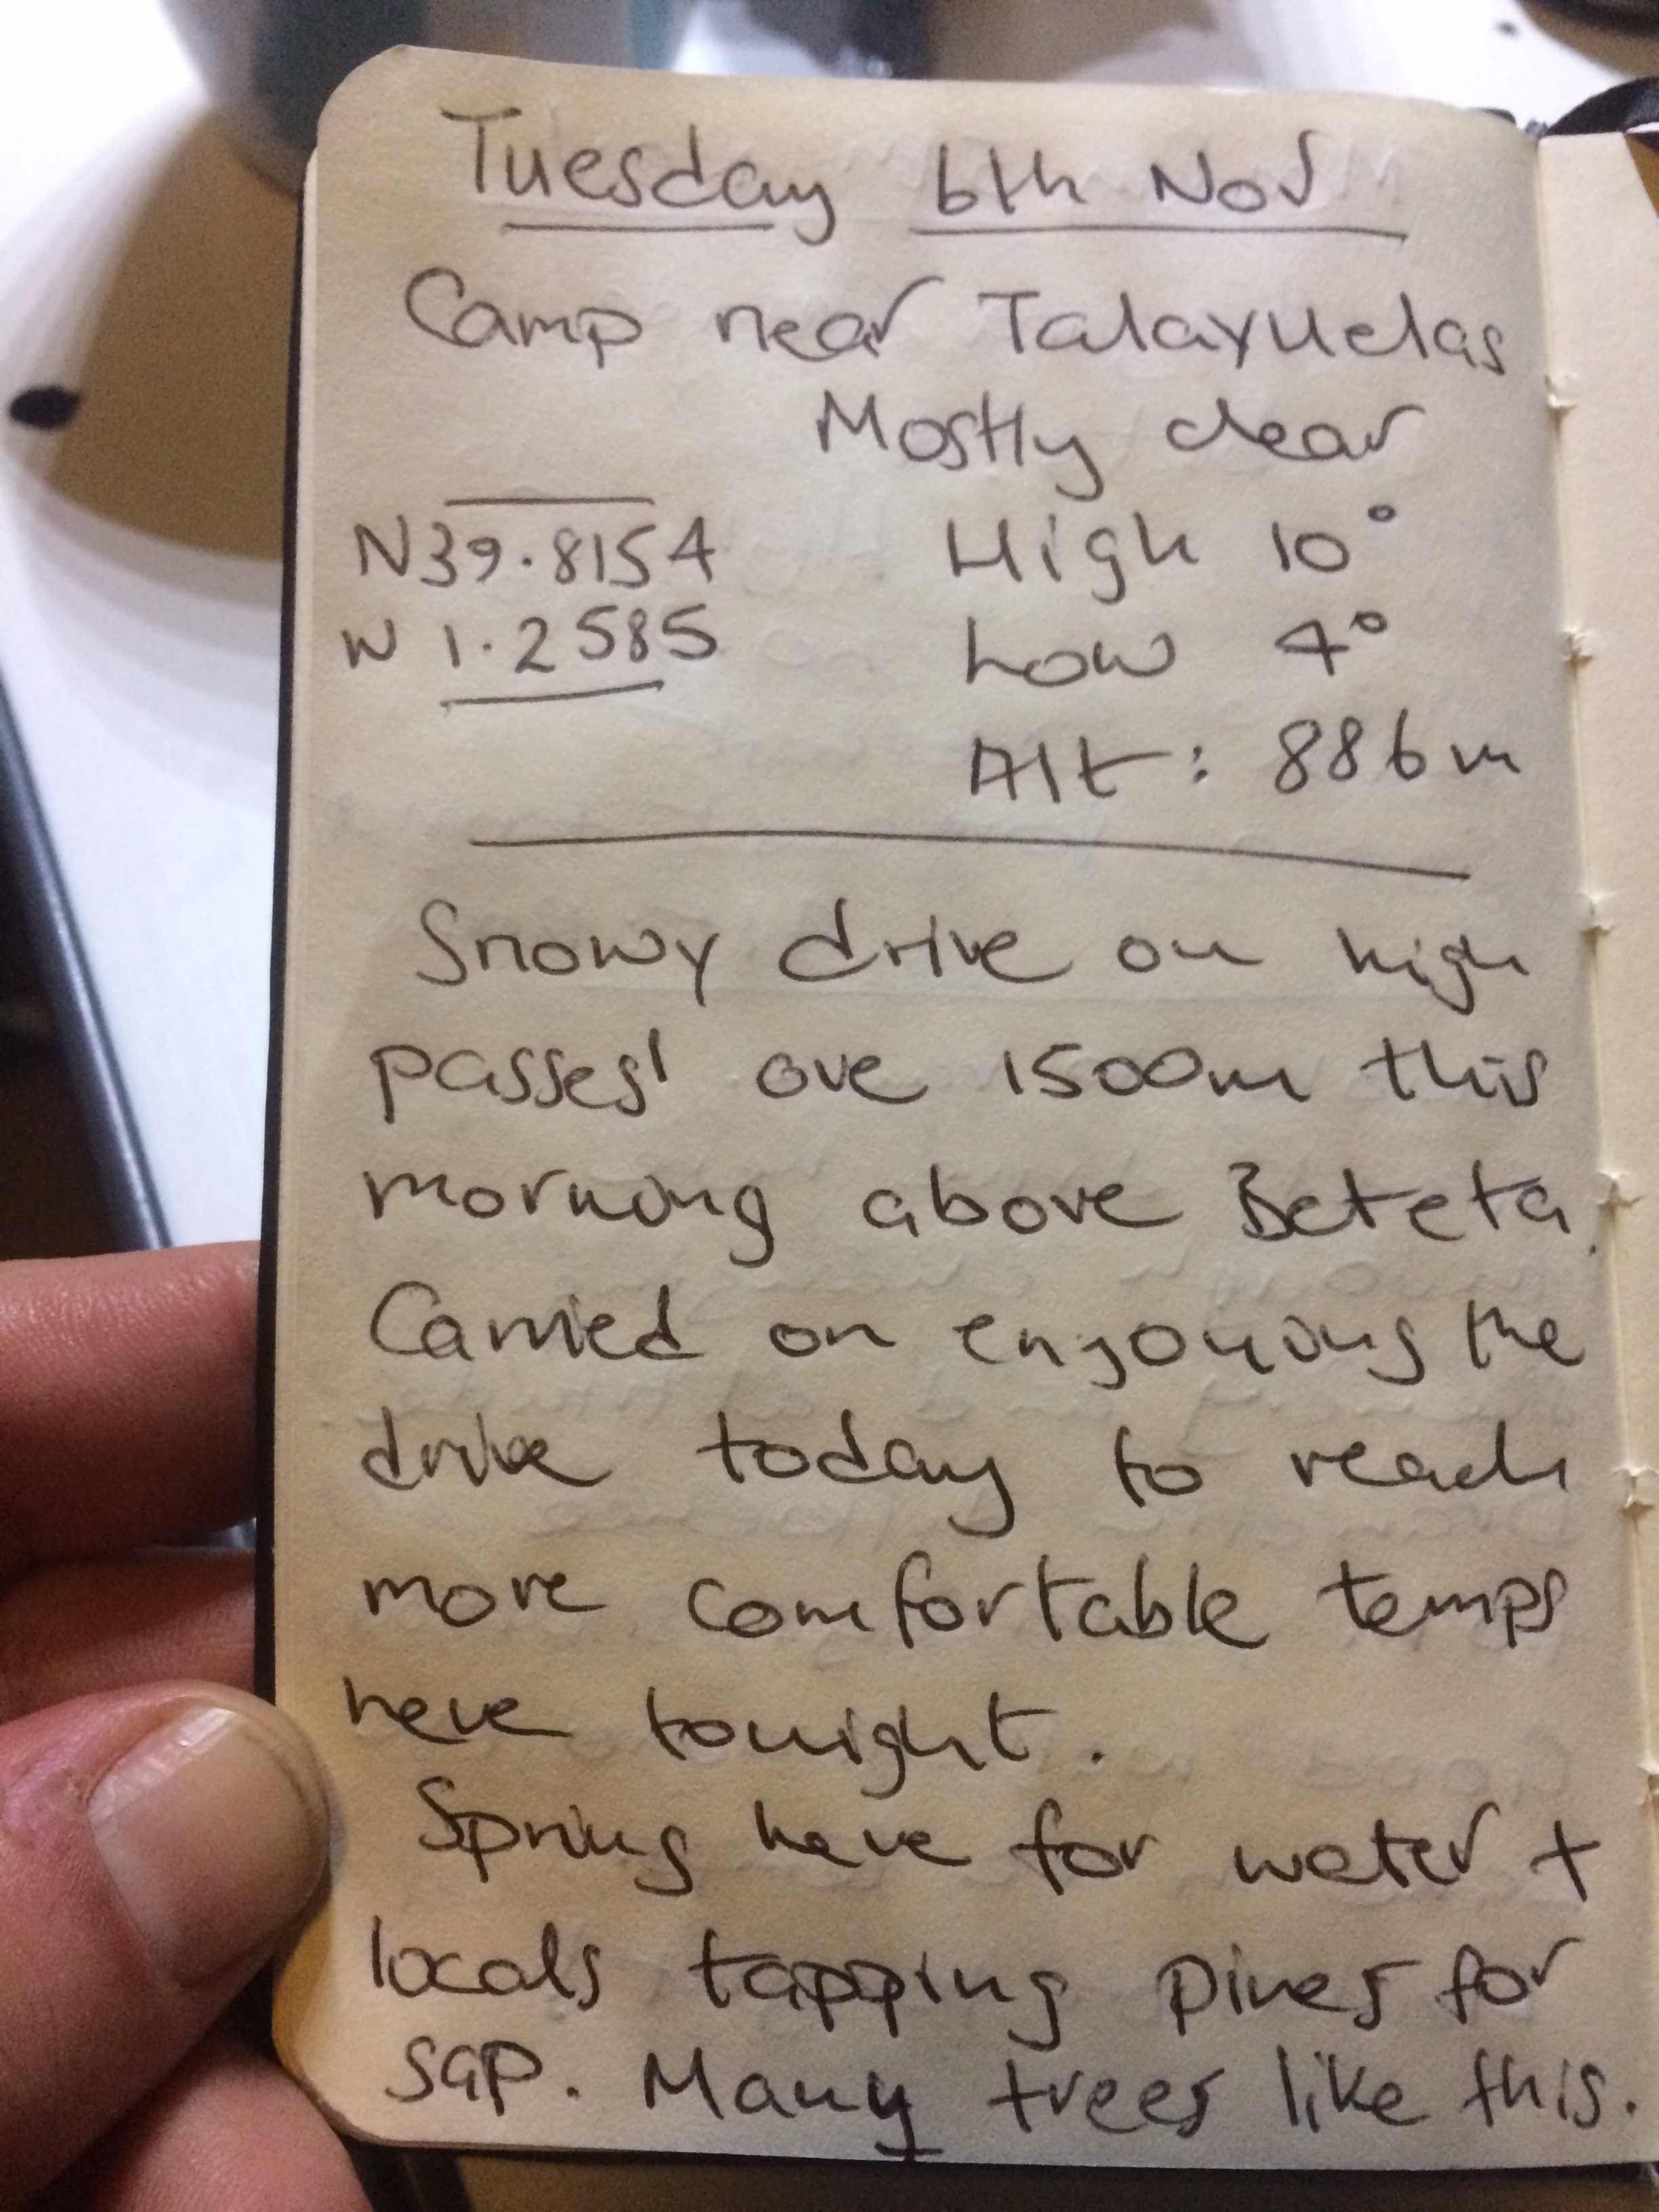 Tuesday 6th Nov
Camp near Talayuelas
Mostly clear
N39.8154
W 1.2585
High 10°
Low 4°
Alt: 886m
Snowy drive on high
passes' ove 1500m this
morning above Beteta.
Carried on enjoying the
drive today to reach
more comfortable temps
here tonight.
Spring here for water +
locals tapping pines for
sap. Many trees like this.